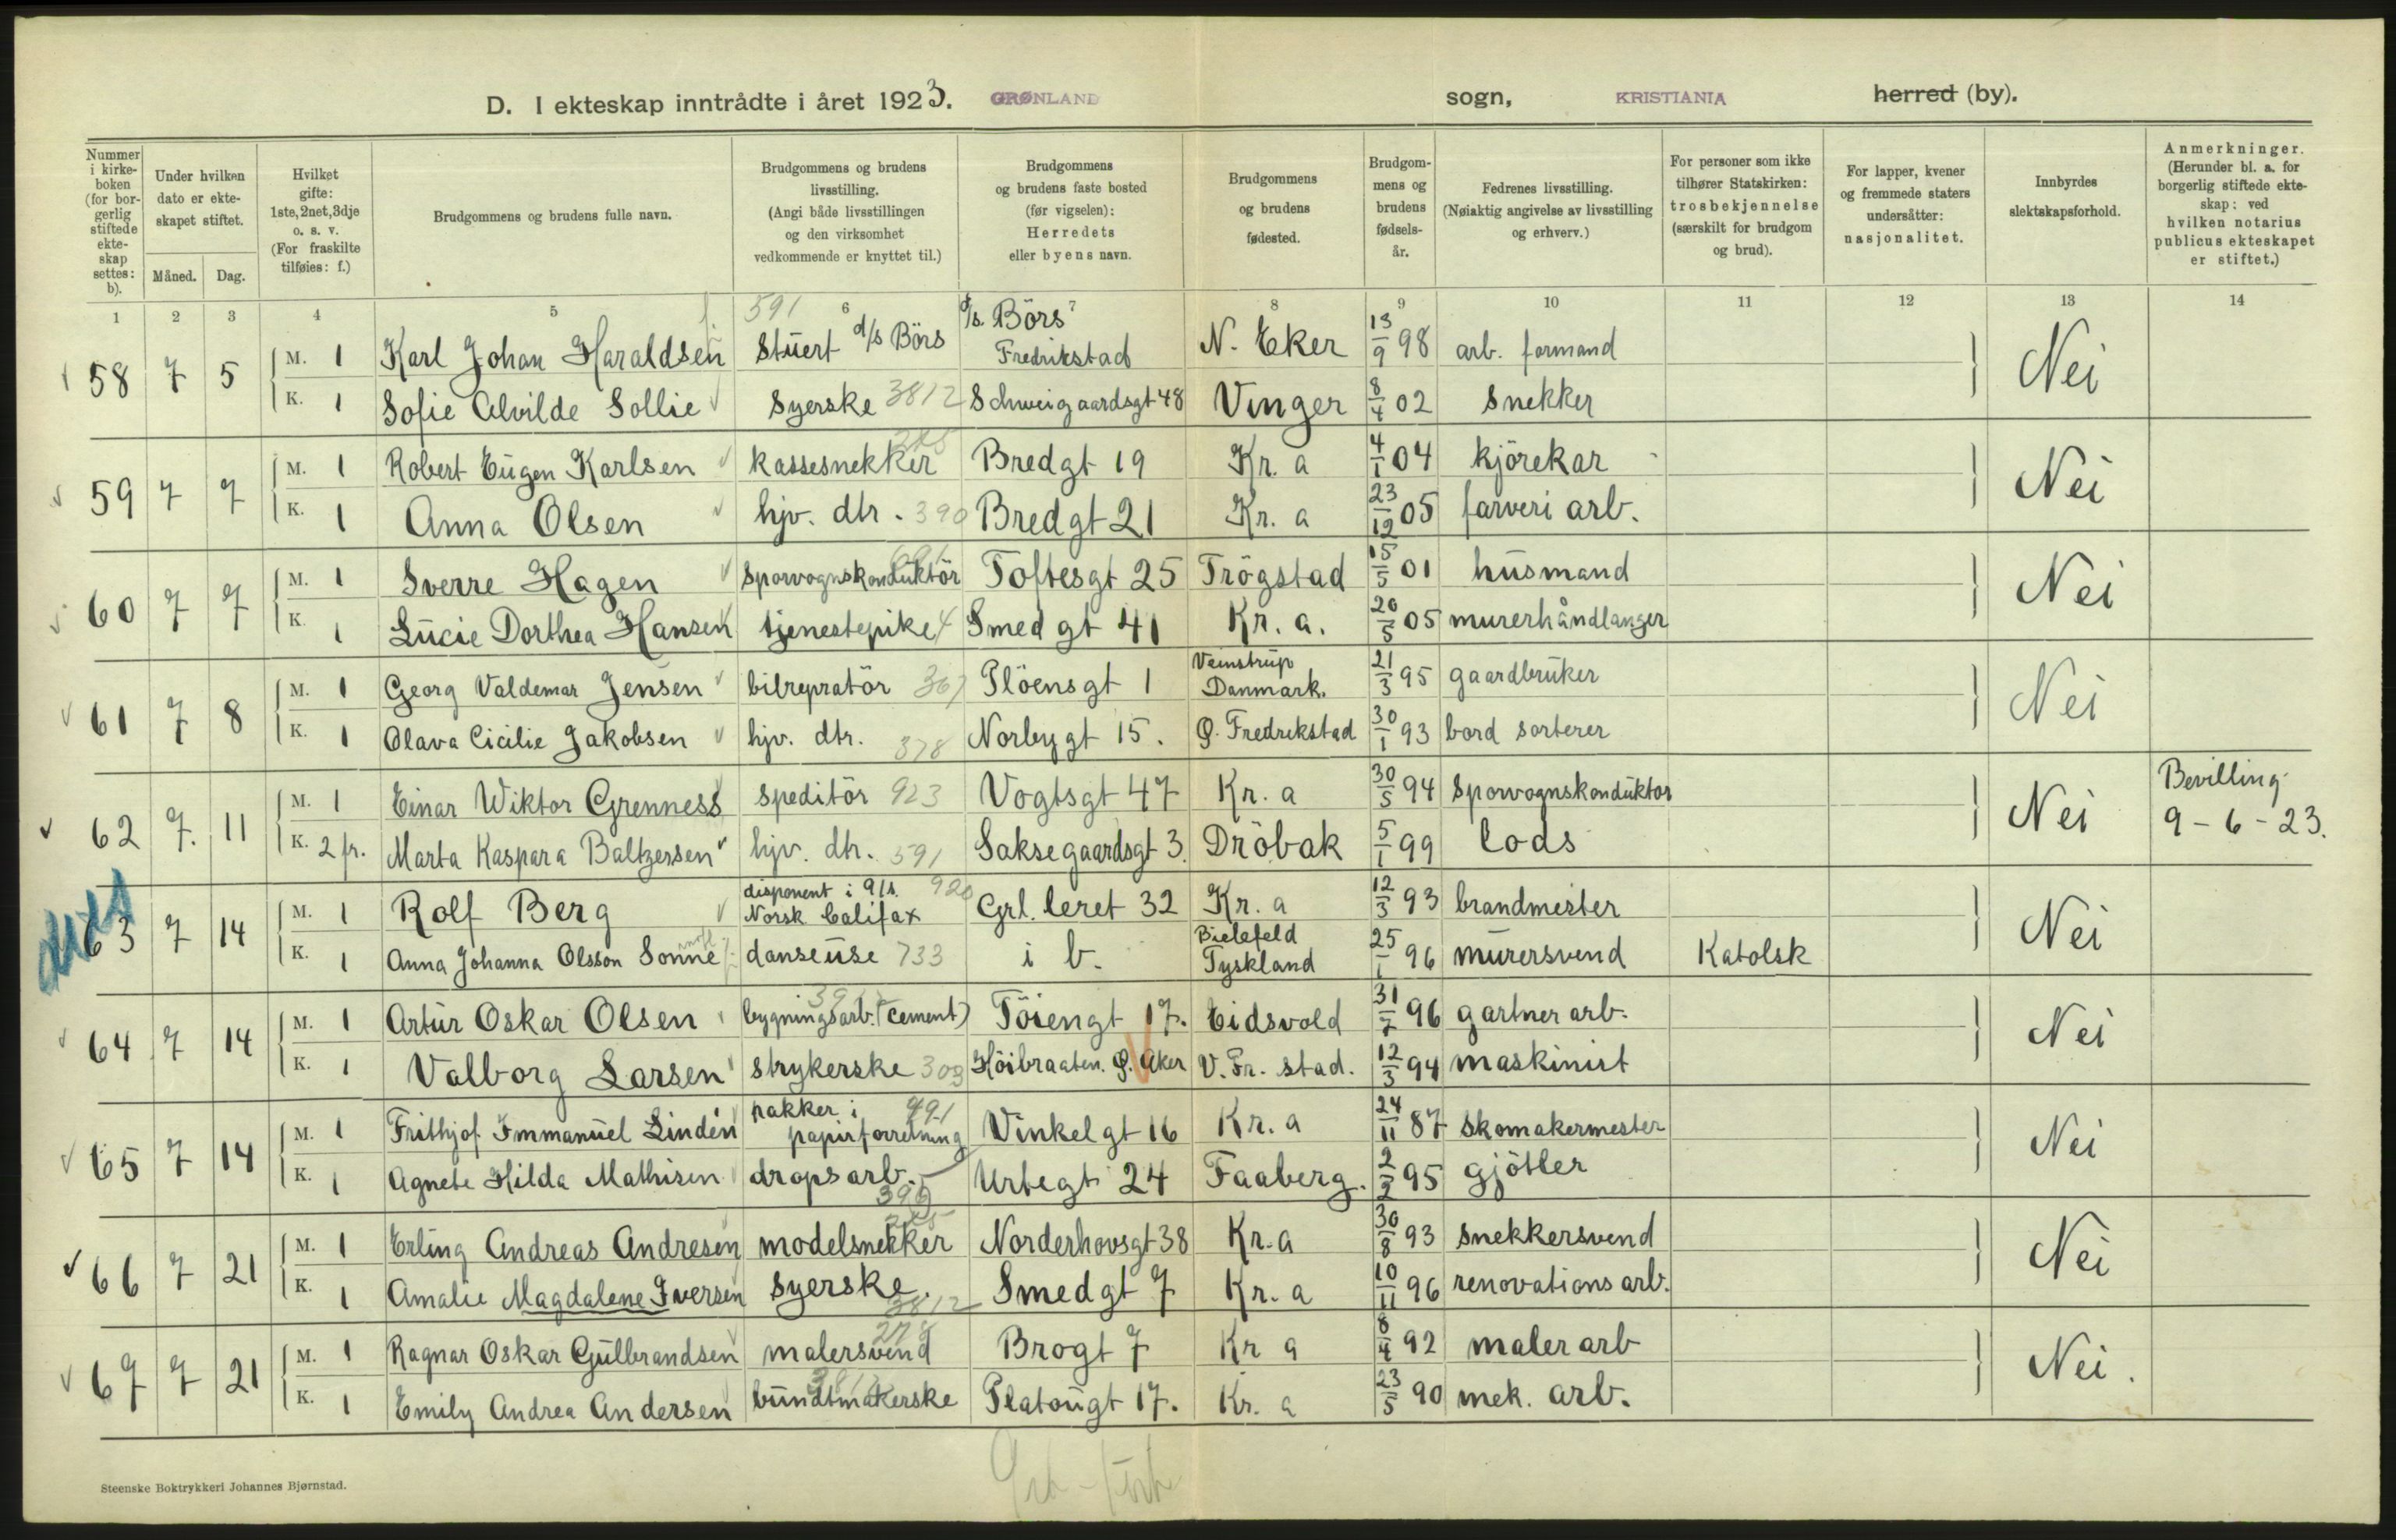 D. I ekteskap inntrådte i året 1923. GRØNLAND sogn, KRISTIANIA herred (by).
Nummer i kirkeboken (for borgerlig stiftede ekteskap settes: b).
Under hvilken dato er ekteskapet stiftet.
Måned. Dag.
Hvilket gifte: 1ste, 2net, 3dje o. s. v. (For fraskilte tilføies: f.)
Brudgommens og brudens fulle navn.
Brudgommens og brudens livsstilling. (Angi både livsstillingen og den virksomhet vedkommende er knyttet til.)
Brudgommens og brudens faste bosted (før vigselen): Herredets eller byens navn.
Brudgommens og brudens fødested.
Brudgommens og brudens fødselsår.
Fedrenes livsstilling. (Nøiaktig angivelse av livsstilling og erhverv.)
For personer som ikke tilhører Statskirken: trosbekjennelse (særskilt for brudgom og brud).
For lapper, kvener og fremmede staters undersåtter: nasjonalitet.
Innbyrdes slektskapsforhold.
Anmerkninger. (Herunder bl. a. for borgerlig stiftede ekteskap: ved hvilken notarius publicus ekteskapet er stiftet.)
1 2 3 4 5 6 7 8 9 10 11 12 13 14
58 7 5 M. 1 Karl Johan Haraldsen Stuert d/s Börs 591 d/s. Börs Fredrikstad N. Eker 13/9 98 arb. formand Nei
K. 1 Sofie Alvilde Sollie Syerske 3812 Schweigaardsgt 48 Vinger 8/4 02 Snekker
59 7 7 M. 1 Robert Eugen Karlsen kassesnekker 385 Bredgt 19 Kr. a 4/1 04 kjörekar Nei
K. 1 Anna Olsen hjv. dtr. 390 Bredgt 21 Kr. a 23/12 05 farveri arb.
60 7 7 M. 1 Sverre Hagen Sporvognskonduktör Toftesgt 25 Trögstad 15/5 01 husmand Nei
K. 1 Lucie Dorthea Hansen tjenestepike Smedgt 41 Kr. a. 20/5 05 murerhåndlanger
61 7 8 M. 1 Georg Valdemar Jensen bilrepratör 367 Plöensgt 1 Veinstrup Danmark. 21/3 95 gaardbruker Nei
K. 1 Olava Cicilie Jakobsen hjv. dtr. 378 Norbygt 15. Ø. Fredrikstad 30/1 93 bord sorterer
62 7. 11 M. 1 Einar Wiktor Grenness speditör 923 Vogtsgt 47 Kr. a 30/5 94 Sporvognskonduktor Nei Bevilling 9-6-23.
K. 2 fr. Marta Kaspara Baltzersen hjv. dtr. 591 Saksegaardsgt 3. Dröbak 5/1 99 lods
63 7 14 M. 1 Rolf Berg disponent i a/s. Norsk Califax 920 Grl. leret 32 Kr. a 12/3 93 brandmester Nei
K. 1 Anna Johanna Olsson Sonne danseuse 733 i b. Bielefeld Tyskland 25/1 96 murersvend Katolsk
64 7 14 M. 1 Artur Oskar Olsen bygningsarb. (cement) Töiengt 17. Eidsvold 31/7 96 gartner arb. Nei
K. 1 Valborg Larsen Strykerske 303 Höibraaten. Ø. Aker V. Fr. stad. 12/3 94 maskinist
65 7 14 M. 1 Frithjof Immanuel Lindén pakker i papirforretning 491 Vinkelgt 16 Kr. a 24/11 87 Skomakermester Nei
K. 1 Agnete Hilda Mathisen drops arb. 399 Urtegt 24 Faaberg. 2/2 95 gjötler
66 7 21 M. 1 Erling Andreas Andresen modelsnekker 385 Norderhovsgt 38 Kr. a 30/8 93 Snekkersvend Nei
K. 1 Amalie Magdalene Iversen Syerske. 3812 Smedgt 7 Kr. a 10/11 96 renovations arb.
67 7 21 M. 1 Ragnar Oskar Gulbrandsen malersvend Brogt 7 Kr a 8/4 92 maler arb Nei.
K. 1 Emily Andrea Andersen bundtmakerske Platougt 17. Kr. a 23/5 90 mek. arb.
Steenske Boktrykkeri Johannes Bjørnstad.